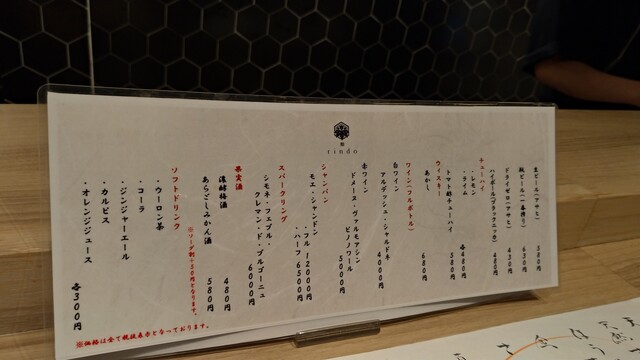 rindo
生ビール(アサヒ) 580円
瓶ビール(一番搾り) 630円
ドライゼロ(アサヒ) 430円
ハイボール(ブラックニッカ) 480円
チューハイ
・レモン
・ライム 各480円
トマト酎チューハイ 580円
ウィスキー
あかし 680円
ワイン(フルボトル)
白ワイン
アルデッシュ・シャルドネ 4000円
赤ワイン
ドメーヌ・ヴァルモアシン
ピノノワール 5000円
シャンパン
モエ・シャンドン
・フル 12000円
・ハーフ 6500円
スパークリング
シモネ・フェブル・
クレマン・ド・ブルゴーニュ 6000円
果実酒
濃醇梅酒 480円
あらごしみかん酒 580円
※ソーダ割+50円となります。
ソフトドリンク
・ウーロン茶
・コーラ
・ジンジャーエール
・カルピス
・オレンジジュース 各300円
※価格は全て税抜表示となっております。